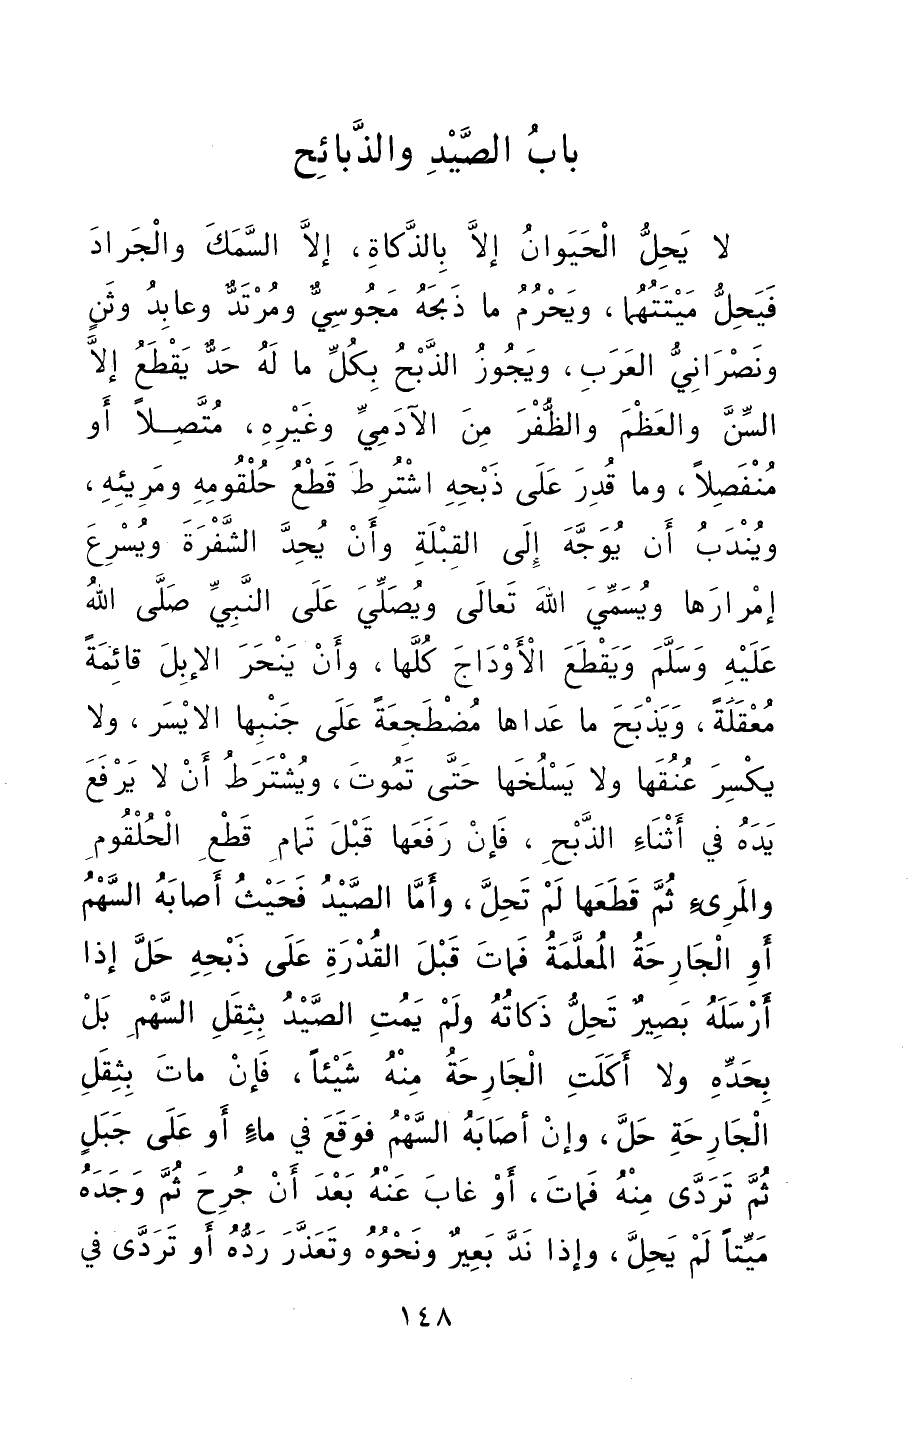 بابُ الصَّيْدِ والذَّبائِح
لا يَحِلُّ الْحَيَوانُ إلاَّ بِالذَّكاةِ، إلاَّ السَّمَكَ والْجَرادَ
فَيَحِلُّ مَيْتَتُهُما، ويَحْرُمُ ما ذَبَحَهُ مَجُوسِيٌّ ومُرْتَدٌّ وعابِدُ وثَنٍ
ونَصْرَانِيُّ العَرَبِ، ويَجُوزُ الذَّبْحُ بِكُلِّ ما لَهُ حَدٌّ يَقْطَعُ إلاَّ
السِّنَّ والعَظْمَ والظُّفْرَ مِنَ الآدَمِيِّ وغَيْرِهِ، مُتَّصِلاً أو
مُنْفَصِلاً، وما قُدِرَ عَلَى ذَبْحِهِ اشْتُرِطَ قَطْعُ حُلْقُومِهِ ومَرِيئِهِ،
ويُنْدَبُ أن يُوَجَّهَ إلَى القِبْلَةِ وأَنْ يُحِدَّ الشَّفْرَةَ ويُسْرِعَ
إمْرارَها ويُسَمِّيَ اللهَ تَعالَى ويُصَلِّيَ عَلَى النَّبِيِّ صَلَّى اللهُ
عَلَيْهِ وَسَلَّمَ وَيَقْطَعَ الْأَوْدَاجَ كُلَّها، وأَنْ يَنْحَرَ الإبِلَ قائِمَةً
مُعْقَلَةً، وَيَذْبَحَ ما عَداها مُضْطَجِعَةً عَلَى جَنْبِها الايْسَرِ، ولا
يكْسِرَ عُنُقَها ولا يَسْلُخَها حَتَّى تَمُوتَ، ويُشْتَرَطُ أَنْ لا يَرْفَعَ
يَدَهُ في أَثْنَاءِ الذَّبْحِ، فَإنْ رَفَعَها قَبْلَ تَمامِ قَطْعِ الْحُلْقُومِ
والمَرِىءِ ثُمَّ قَطَعَها لَمْ تَحِلَّ، وأَمَّا الصَّيْدُ فَحَيْثُ أصابَهُ السَّهْمُ
أوِ الْجَارِحَةُ المُعلَّمَةُ فَماتَ قَبْلَ القُدْرَةِ عَلَى ذَبْحِهِ حَلَّ إذا
أَرْسَلَهُ بَصِيرٌ تَحِلُّ ذَكاتُهُ ولَمْ يَمُتِ الصَّيْدُ بِثِقَلِ السَّهْمِ بَلْ
بِحَدِّهِ ولا أَكَلَتِ الْجَارِحَةُ مِنْهُ شَيْئاً، فَإنْ ماتَ بِثِقَلِ
الْجَارِحَةِ حَلَّ، وإنْ أصَابَهُ السَّهْمُ فوَقَعَ في ماءٍ أو عَلَى جَبَلٍ
ثُمَّ تَرَدَّى مِنْهُ فَماتَ، أَوْ غابَ عَنْهُ بَعْدَ أَنْ جُرِحَ ثُمَّ وَجَدَهُ
مَيِّتاً لَمْ يَحِلَّ، وإذا نَدَّ بَعِيرٌ ونَحْوُهُ وتَعَذَّرَ رَدُّهُ أو تَرَدَّى في
١٤٨